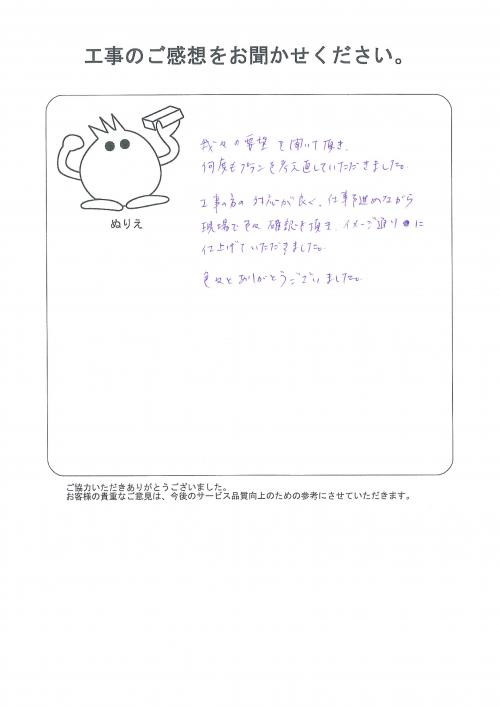 工事のご感想をお聞かせください。
ぬりえ
我々の要望を聞いて頂き、
何度もプランを考え直していただきました。
工事の方の対応が良く、仕事を進めながら
現場で色々確認を頂き、イメージ通りに
仕上げていただきました。
色々とありがとうございました。
ご協力いただきありがとうございました。
お客様の貴重なご意見は、今後のサービス品質向上のための参考にさせていただきます。